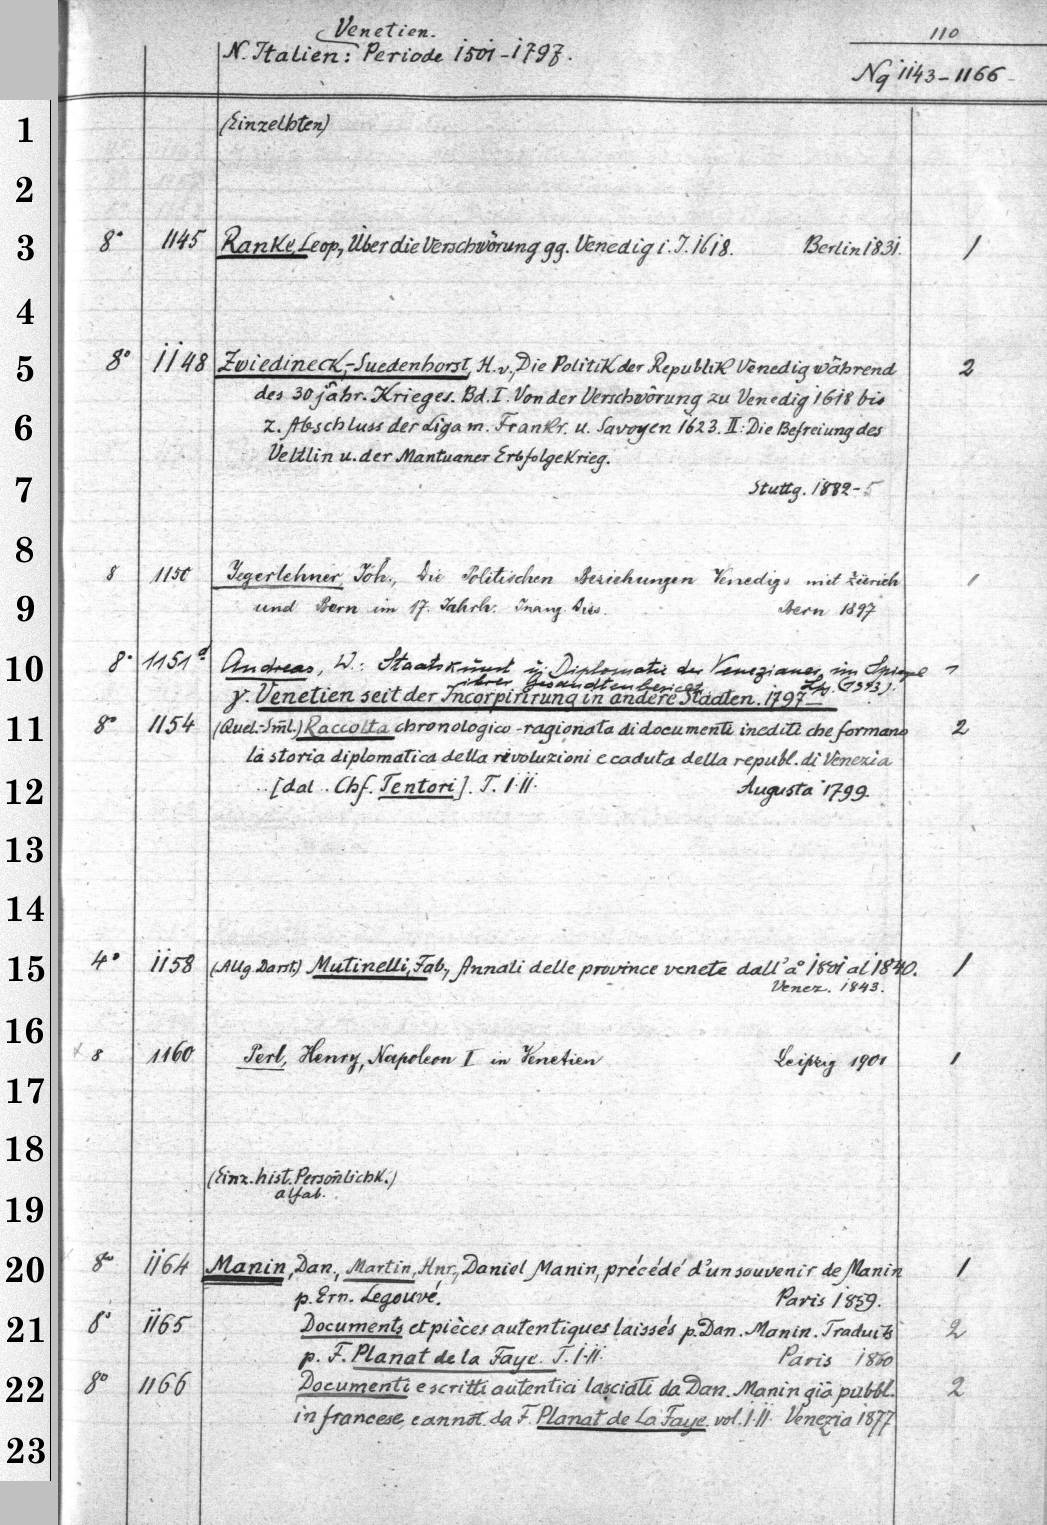 Venetien.
110
N. Italien: Periode 1501-1797.
Nq 1143-1166
1 (Einzelhten)
2
3 8° 1145 Ranke, Leop., Über die Verschwörung gg. Venedig i. J. 1618. Berlin 1831. 1
4
5 8° 1148 Zwiedineck-Suedenhorst, H. v., Die Politik der Republik Venedig während 2
des 30 jähr. Krieges. Bd. I. Von der Verschwörung zu Venedig 1618 bis
6 z. Abschluss der Liga m. Frankr. u. Savoyen 1623. II: Die Befreiung des
Veltlin u. der Mantuaner Erbfolgekrieg.
7 Stuttg. 1882-5
8
8 1150 Jegerlehner, Joh., Die Politischen Beziehungen Venedigs mit Zürich 1
9 und Bern im 17. Jahrh. Inaug. Diss. Bern 1897
10 8° 1151 d Andreas, W.: Staatskunst u. Diplomatie der Venezianer im Spiegel 1
ihrer Gesandtenberichte. Lpz. (1943).
γ. Venetien seit der Incorpirirung in andere Staaten. 1797-
11 8° 1154 (Quel.-Sml.) Raccolta chronologico-ragionata di documenti inediti che formano 2
la storia diplomatica della revoluzioni e caduta della republ. di Venezia
12 [dal.. Chf. Tentori]. T. I-II. Augusta 1799.
13
14
15 4° 1158 (Allg. Darst.) Mutinelli, Fab., Annali delle province venete dall'a° 1801 al 1840. 1
Venez. 1843.
16
8 1160 Perl, Henry, Napoleon I in Venetien Leipzig 1901 1
17
18
(Einz. hist. Persönlichk.)
alfab.
19
20 8° 1164 Manin, Dan., Martin, Hnr., Daniel Manin, précédé d'un souvenir de Manin 1
p. Ern. Legouvé. Paris 1859.
21 8° 1165 Documents et pièces autentiques laissés p. Dan. Manin. Traduits 2
p. F. Planat de la Faye. T. I-II. Paris 1860
22 8° 1166 Documenti e scritti autentici lasciati da Dan. Manin già pubbl. 2
in francese, e annot. da F. Planat de La Faye. vol. I-II. Venezia 1877
23